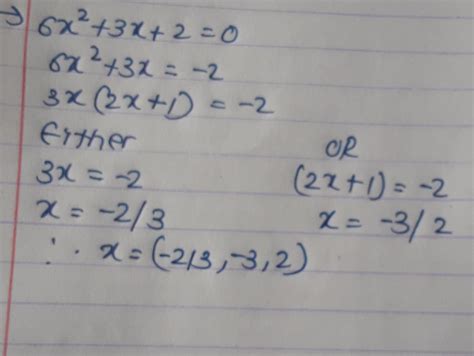 → 6x²+3x+2=0
6x²+3x = -2
3x(2x+1) = -2
Either OR
3x = -2 (2x+1) = -2
x = -2/3 x = -3/2
∴ x = (-2/3, -3,2)